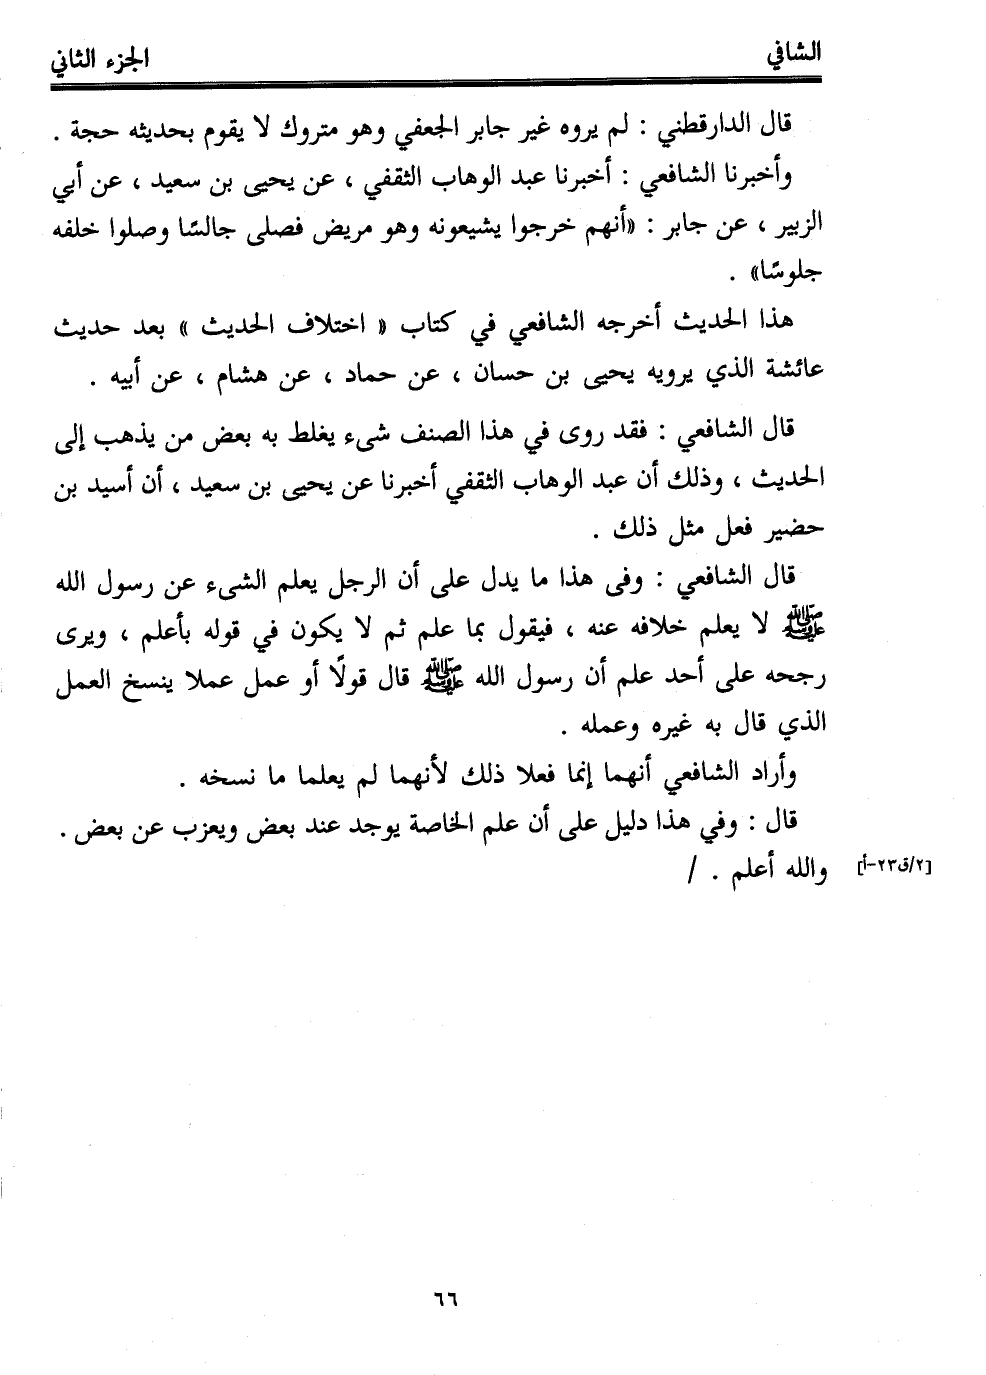 الشافي
الجزء الثاني
قال الدارقطني : لم يروه غير جابر الجعفي وهو متروك لا يقوم بحديثه حجة .
وأخبرنا الشافعي : أخبرنا عبد الوهاب الثقفي ، عن يحيى بن سعيد ، عن أبي
الزبير ، عن جابر : «أنهم خرجوا يشيعونه وهو مريض فصلى جالسًا وصلوا خلفه
جلوسًا» .
هذا الحديث أخرجه الشافعي في كتاب « اختلاف الحديث » بعد حديث
عائشة الذي يرويه يحيى بن حسان ، عن حماد ، عن هشام ، عن أبيه .
قال الشافعي : فقد روى في هذا الصنف شيء يغلط به بعض من يذهب إلى
الحديث ، وذلك أن عبد الوهاب الثقفي أخبرنا عن يحيى بن سعيد ، أن أسيد بن
حضير فعل مثل ذلك .
قال الشافعي : وفى هذا ما يدل على أن الرجل يعلم الشيء عن رسول الله
ﷺ لا يعلم خلافه عنه ، فيقول بما علم ثم لا يكون في قوله بأعلم ، ويرى
رجحه على أحد علم أن رسول الله ﷺ قال قولًا أو عمل عملا ينسخ العمل
الذي قال به غيره وعمله .
وأراد الشافعي أنهما إنما فعلا ذلك لأنهما لم يعلما ما نسخه .
قال : وفي هذا دليل على أن علم الخاصة يوجد عند بعض ويعزب عن بعض .
والله أعلم . / [٢/ق٢٣-أ]
٦٦